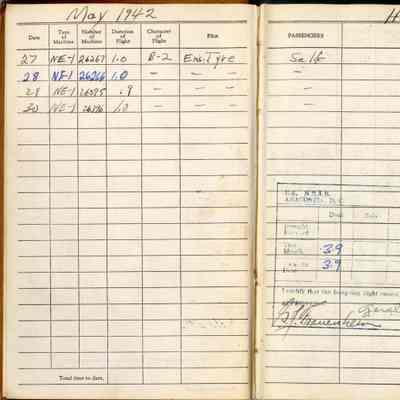 May 1942
Date Type of Machine Number of Machine Duration of Flight Character of Flight Pilot PASSENGERS
27 NE-1 26267 1.0 B-2 Ens. Tyre Self
28 NE-1 26266 1.0 — — —
29 NE-1 .9 — — —
30 NE-1 1.0 — — —
U.S. N.R.A.B.
ANACOSTIA, D.C.
Dual Solo
This Month 3.9
Date 3.9
I certify that the foregoing flight record
Total time to date.